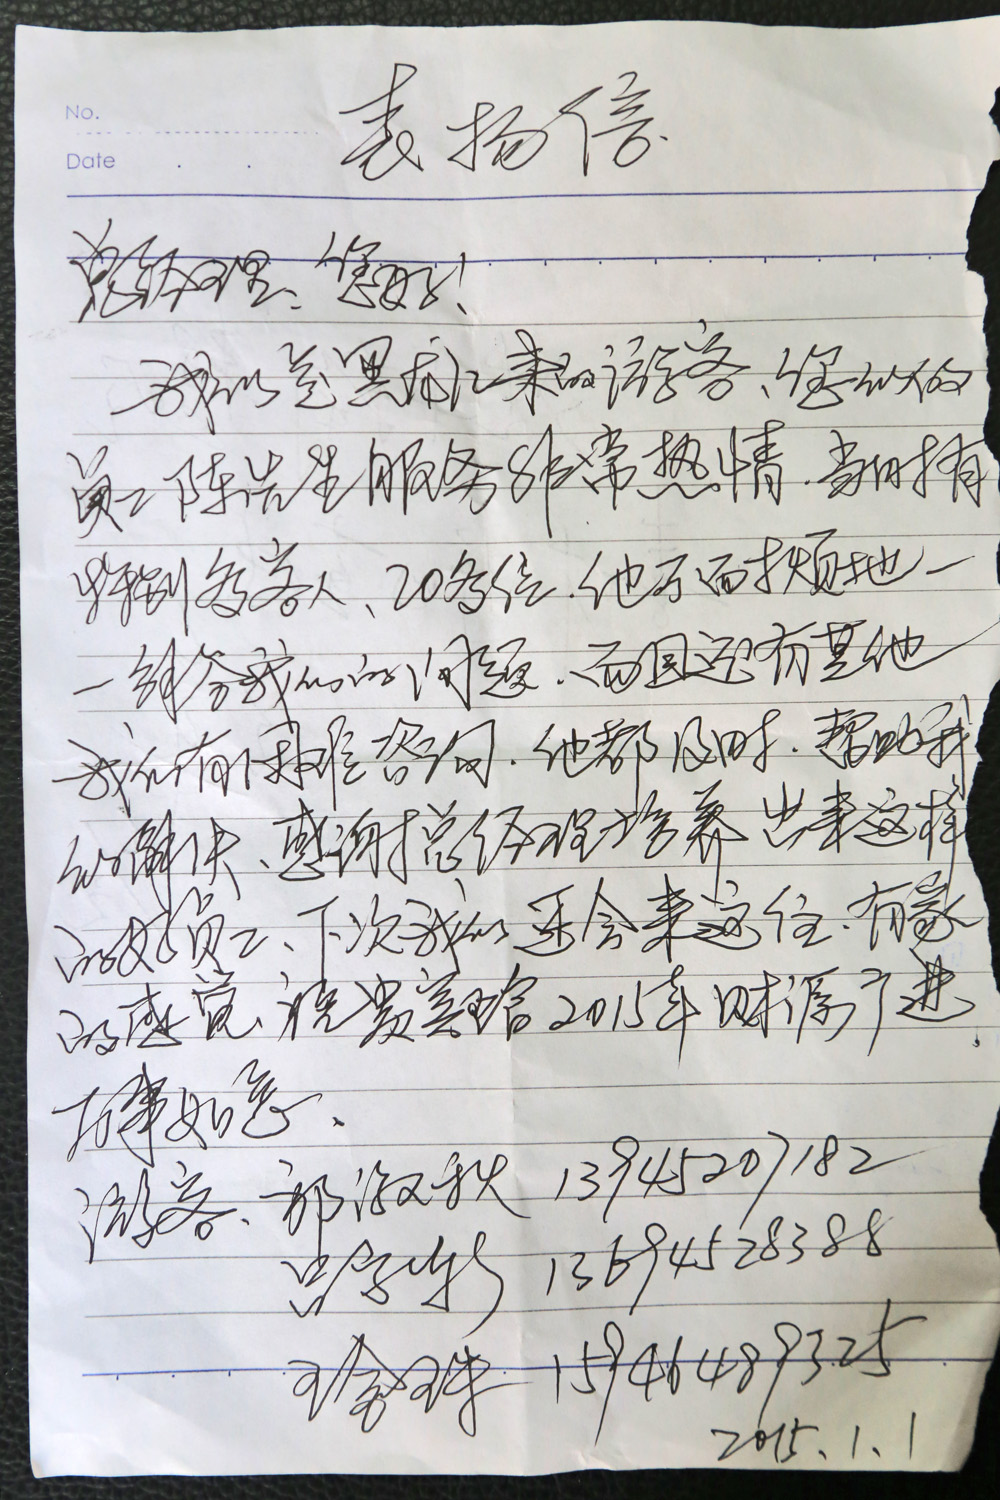 No.
Date
表扬信
总经理、您好!
我们是黑龙江来的游客、您们的
员工陈浩生服务非常热情.当时有
特别多客人、20多位.他不耐烦地一
一解答我们的问题.而且还有其他
我们有 咨询.他都及时.帮助我
们解决、感谢总经理培养出来这样
的好员工、下次我们还会来这住.有家
的感觉、祝贵宾馆2015年财源广进
万事如意.
游客、郭淑秋 13945207182
吕 13694528388
王金珠 15946489325
2015.1.1